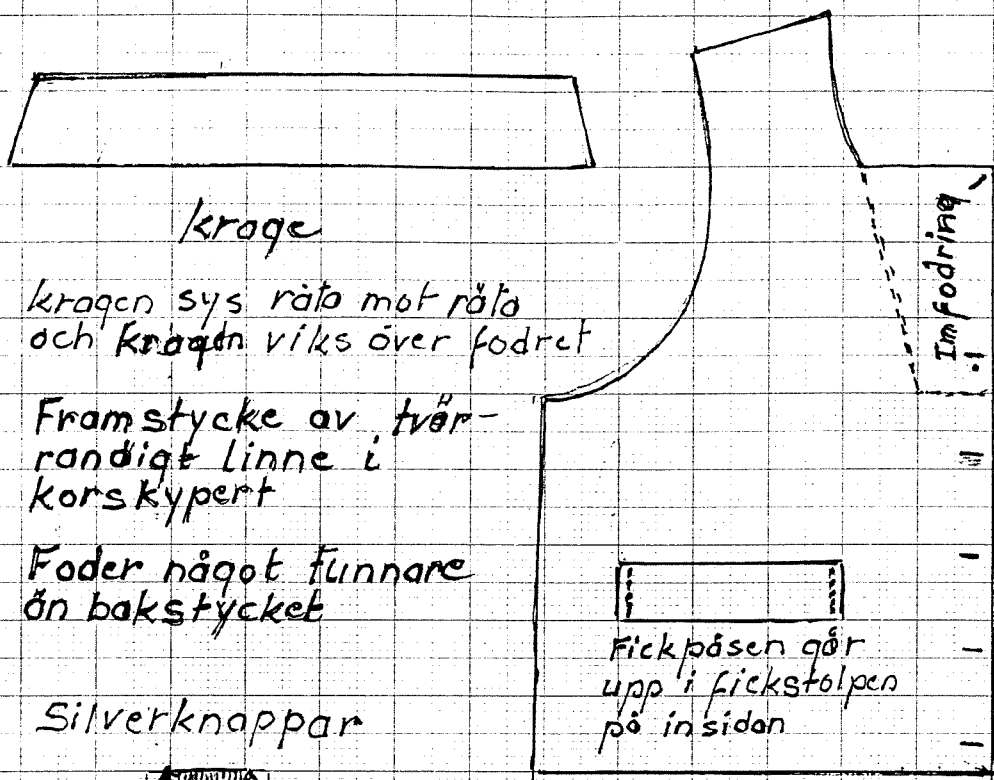 krage
kragen sys räta mot räta
och kragen viks över fodret
Framstycke av tvär-
randigt linne i
korskypert
Foder något tunnare
än bakstycket
Silverknappar
Imfodring
Fickpåsen går
upp i fickstolpen
på insidan